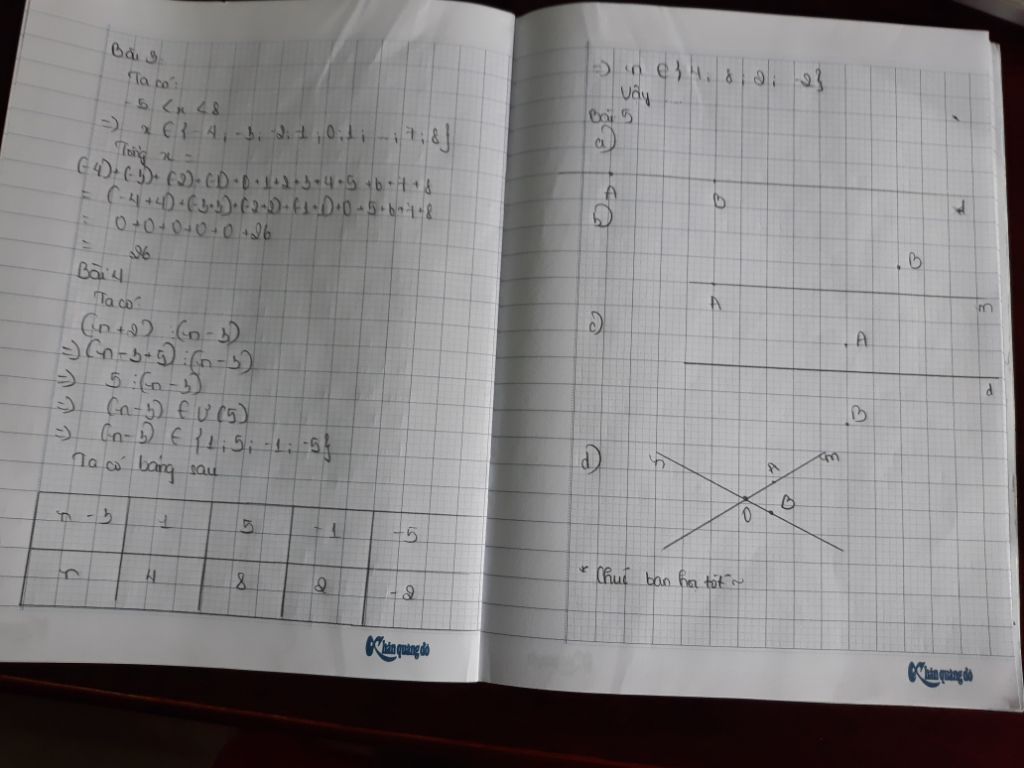 Bài 3:
Ta có:
-5 < x < 8
=> x ∈ { -4 ; -3 ; -2 ; 1 ; 0 ; 1 ; ... ; 7 ; 8}
Tổng x =
(-4) + (-3) + (-2) + (-1) + 0 + 1 + 2 + 3 + 4 + 5 + 6 + 7 + 8
= (-4+4) + (-3+3) + (-2+2) + (-1+1) + 0 + 5 + 6 + 7 + 8
= 0 + 0 + 0 + 0 + 0 + 26
= 26
Bài 4
Ta có
(n+2) : (n-3)
=> (n-3+5) : (n-3)
=> 5 : (n-3)
=> (n-3) ∈ Ư(5)
=> (n-3) ∈ {1 ; 5 ; -1 ; -5}
Ta có bảng sau
n - 3 1 5 -1 -5
n 4 8 2 -2
Khăn quàng đỏ
=> n ∈ {4 ; 8 ; 2 ; -2}
Vậy ...
Bài 5
a)
A B d
b)
B
A m
c)
A
d
B
d)
n A m
O B
* Chúc bạn học tốt ~
Khăn quàng đỏ